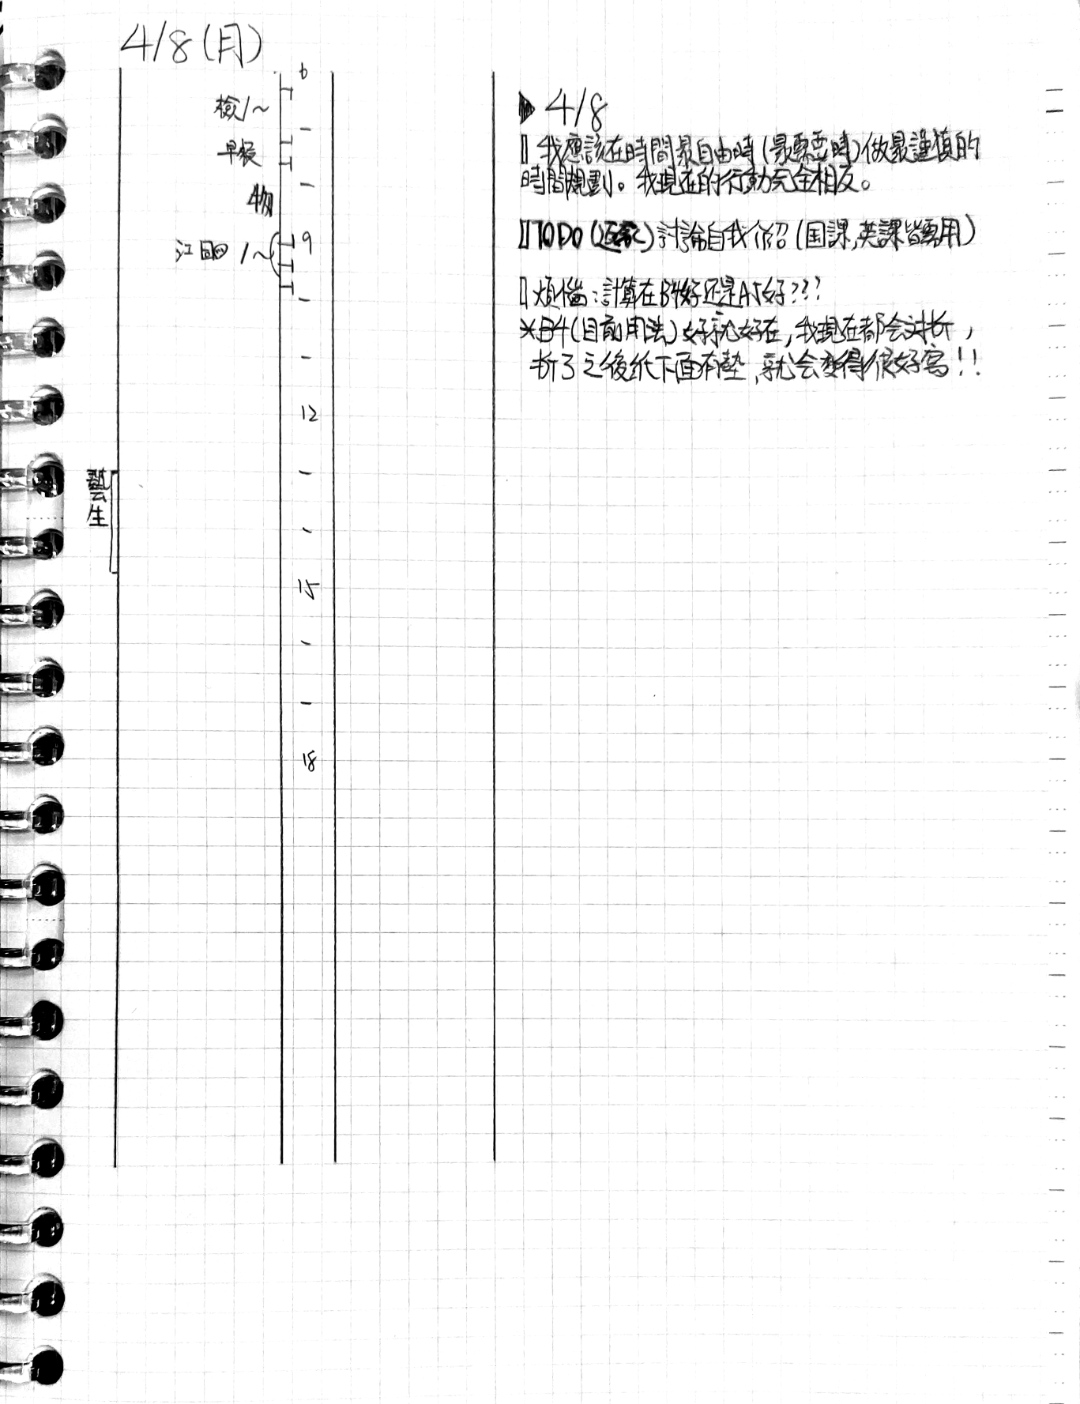 4/8(月)
6
檢1~
早餐
物
9
江 1~
12
藝生
15
18
▶ 4/8
我應該在時間最自由時(最要時)做最謹慎的
時間規劃。我現在的行動完全相反。
TODO()討論自我介紹(国課,英課皆專用)
煩惱:計算在B4好还是A5好???
※B4(目前用法)好就好在,我現在都会对折,
折了之後纸下面有墊,就会变得很好寫!!